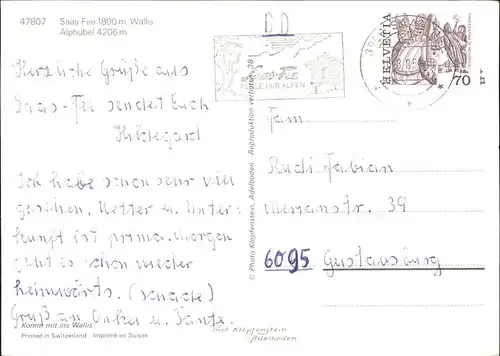 47807 Saas-Fee 1800 m, Wallis
Alphubel 4206 m.
Herzliche Grüße aus
Saas-Fee sendet Euch
Hildegard
Ich habe schon sehr viel
gesehen. Wetter u. Unter-
kunft ist prima. Morgen
geht es schon wieder
heimwärts. (schade)
Gruß an Onkel u. Tante.
Komm mit ins Wallis
Printed in Switzerland - Imprimé en Suisse
© Photo Klopfenstein, Adelboden - Reproduktion verboten
Saas-Fee
PERLE DER ALPEN
HELVETIA
70
Fam
Rudi Fabian
39
6095
Klopfenstein
Adelboden